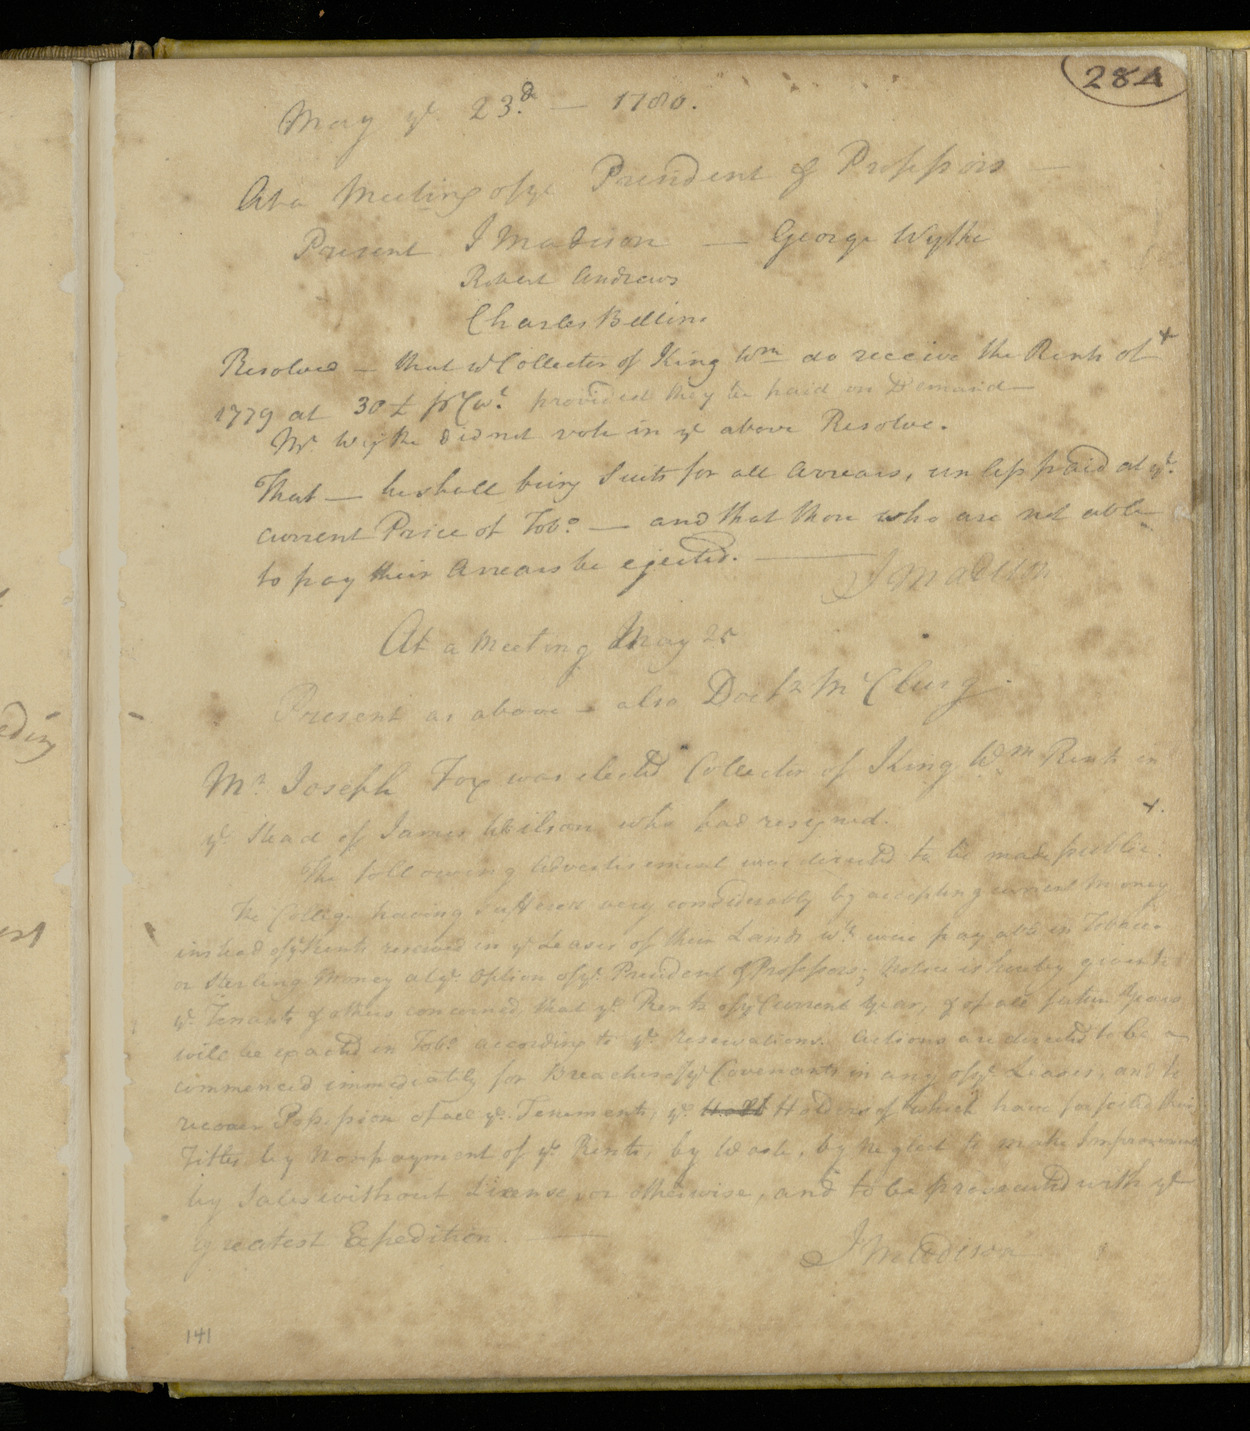 284
May ye 23.d — 1780.
At a Meeting of ye President & Professors —
Present J Madison — George Wythe
Robert Andrews
Charles Bellini
Resolved — that ye Collector of King Wm do receive the Rents of +
1779 at 30 £ pr Cwt. provided they be paid on Demand —
Mr Wythe did not vote in ye above Resolve.
That — he shall bring Suits for all Arrears, unless paid at ye.
current Price of Tobo. — and that those who are not able
to pay their Arrears be ejected. — J Madison
At a Meeting May 25
Present as above — also Doctr McClurg.
Mr. Joseph Fox was elected Collector of King Wm Rents in
ye Stead of James Wilson who had resigned. +.
The following Advertisement was directed to be made public.
The College having suffered very considerably by accepting current Money
instead of ye Rents reserved in ye Leases of their Lands wh. were payable in Tobacco
or Sterling Money at ye. Option of ye. President & Professors; Notice is hereby given to
ye. Tenants & others concerned that ye. Rents of ye Current Year, & of all future Years
will be exacted in Tobo. according to ye. reservations. Actions are directed to be
commenced immediately for Breaches of ye Covenants in any of ye. Leases, and to
recover Possession of all ye. Tenements, ye. Holders of which have forfeited their
Titles by Nonpayment of ye. Rents, by Waste, by Neglect to make Improvements
by Sales without License, or otherwise, and to be prosecuted with ye
greatest Expedition. —
J Madison
141